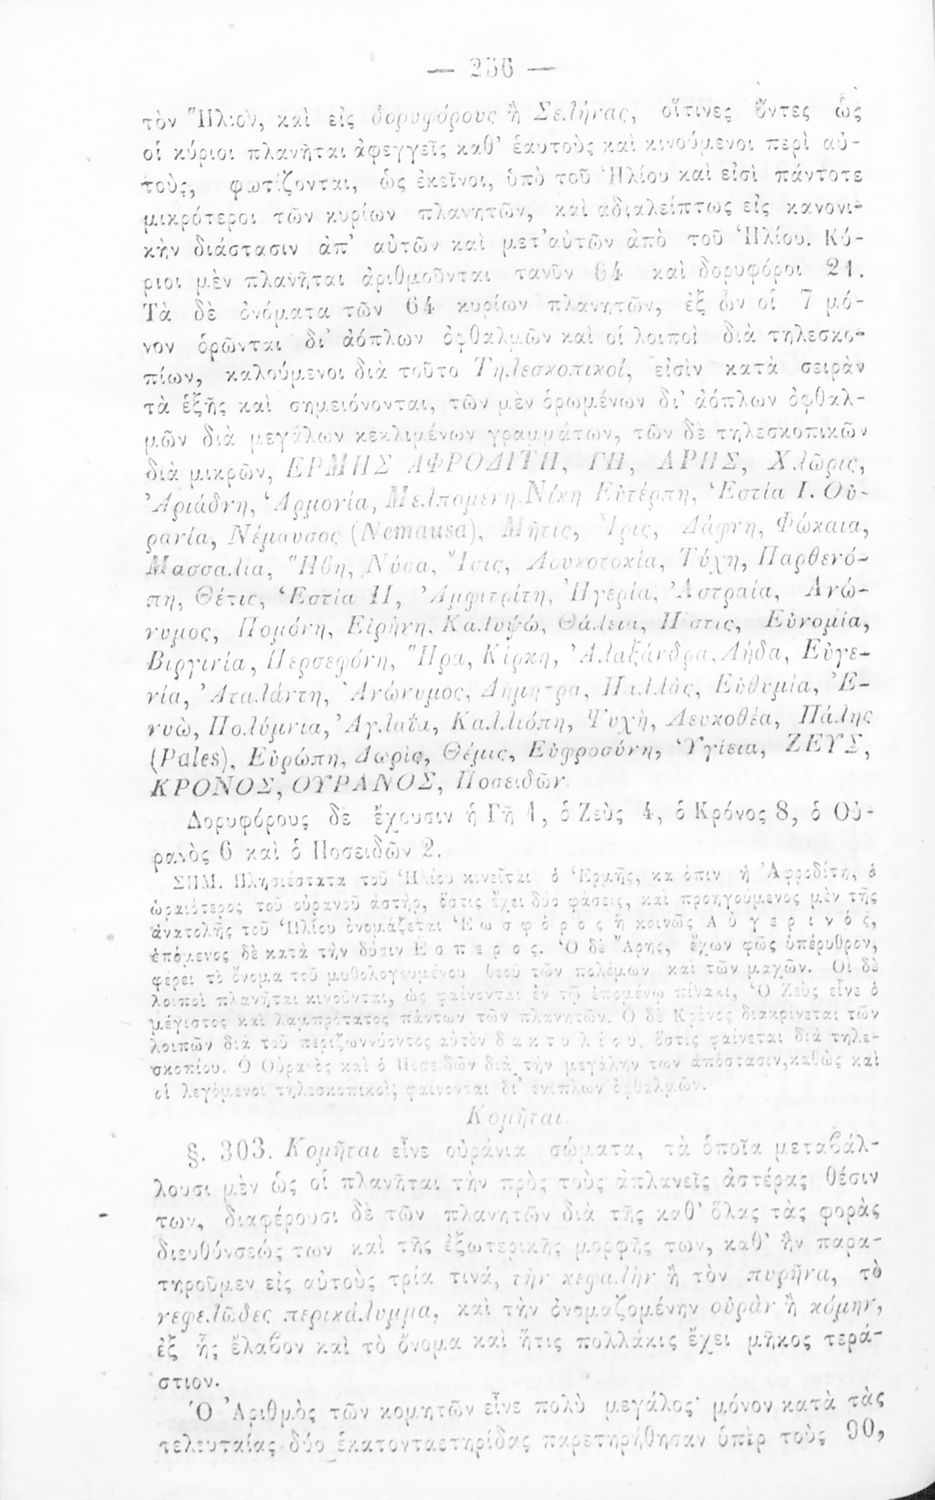 — 236 —
τὸν Ἥλιον, καὶ εἰς δορυφόρους ἢ Σελήνας, οἵτινες ὄντες ὡς
οἱ κύριοι πλανῆται ἀφεγγεῖς καθ' ἑαυτοὺς καὶ κινούμενοι περὶ αὐ-
τοὺς, φωτίζονται, ὡς ἐκεῖνοι, ὑπὸ τοῦ Ἡλίου καὶ εἰσὶ πάντοτε
μικρότεροι τῶν κυρίων πλανητῶν, καὶ ἀδιαλείπτως εἰς κανονι-
κὴν διάστασιν ἀπ' αὐτῶν καὶ μετ' αὐτῶν ἀπὸ τοῦ Ἡλίου. Κύ-
ριοι μὲν πλανῆται ἀριθμοῦνται τανῦν 64 καὶ δορυφόροι 21.
Τὰ δὲ ὀνόματα τῶν 64 κυρίων πλανητῶν, ἐξ ὧν οἱ 7 μό-
νον ὁρῶνται δι' ἀόπλων ὀφθαλμῶν καὶ οἱ λοιποὶ διὰ τηλεσκο-
πίων, καλούμενοι διὰ τοῦτο Τηλεσκοπικοί, εἰσὶν κατὰ σειρὰν
τὰ ἑξῆς καὶ σημειόνονται, τῶν μὲν ὁρωμένων δι' ἀόπλων ὀφθαλ-
μῶν διὰ μεγάλων κεκλιμένων γραμμάτων, τῶν δὲ τηλεσκοπικῶν
διὰ μικρῶν, ΕΡΜΗΣ ΑΦΡΟΔΙΤΗ, ΓΗ, ΑΡΗΣ, Χλῶρις,
Ἀριάδνη, Ἁρμονία, Μελπομένη, Νίκη Εὐτέρπη, Ἑστία Ι. Οὐ-
ρανία, Νέμαυσος (Nemausa), Μῆτις, Ἶρις, Δάφνη, Φώκαια,
Μασσαλία, Ἥβη, Νύσα, Ἶσις, Λουκοτοκία, Τύχη, Παρθενό-
πη, Θέτις, Ἑστία ΙΙ, Ἀμφιτρίτη, Ἠγερία, Ἀστραία, Ἀνώ-
νυμος, Πομόνη, Εἰρήνη, Καλυψώ, Θάλεια, Πίστις, Εὐνομία,
Βιργινία, Περσεφόνη, Ἥρα, Κίρκη, Ἀλαξάνδρα, Λήδα, Εὐγε-
νία, Ἀταλάντη, Ἀνώνυμος, Δήμητρα, Παλλὰς, Εὐθυμία, Ἐ-
νυὼ, Πολύμνια, Ἀγλαΐα, Καλλιόπη, Ψυχὴ, Λευκοθέα, Πάλης
(Pales), Εὐρώπη, Δωρὶς, Θέμις, Εὐφροσύνη, Ὑγίεια, ΖΕΥΣ,
ΚΡΟΝΟΣ, ΟΥΡΑΝΟΣ, Ποσειδῶν.
Δορυφόρους δὲ ἔχουσιν ἡ Γῆ 1, ὁ Ζεὺς 4, ὁ Κρόνος 8, ὁ Οὐ-
ρανὸς 6 καὶ ὁ Ποσειδῶν 2.
ΣΗΜ. Πλησιέστατα τοῦ Ἡλίου κινεῖται ὁ Ἑρμῆς, κα ὄπιν ἡ Ἀφροδίτη, ὁ
ὡραιότερος τοῦ οὐρανοῦ ἀστήρ, ὅστις ἔχει δύο φάσεις, καὶ προηγούμενος μὲν τῆς
ἀνατολῆς τοῦ Ἡλίου ὀνομάζεται Ἑωσφόρος ἢ κοινῶς Αὐγερινός,
ἑπόμενος δὲ κατὰ τὴν δύσιν Ἕσπερος. Ὁ δὲ Ἄρης, ἔχων φῶς ὑπέρυθρον,
φέρει τὸ ὄνομα τοῦ μυθολογουμένου θεοῦ τῶν πολέμων καὶ τῶν μαχῶν. Οἱ δὲ
λοιποὶ πλανῆται κινοῦνται, ὡς φαίνονται ἐν τῷ ἑπομένῳ πίνακι, Ὁ Ζεὺς εἶνε ὁ
μέγιστος καὶ λαμπρότατος πάντων τῶν πλανητῶν. Ὁ δὲ Κρόνος διακρίνεται τῶν
λοιπῶν διὰ τοῦ περιζωννύοντος αὐτὸν δακτυλίου, ὅστις φαίνεται διὰ τηλε-
σκοπίου. Ὁ Οὐρανὸς καὶ ὁ Ποσειδῶν διὰ τὴν μεγάλην των ἀπόστασιν, καθὼς καὶ
οἱ λεγόμενοι τηλεσκοπικοὶ, φαίνονται δι' ἐνόπλων ὀφθαλμῶν.
Κομῆται
§. 303. Κομῆται εἶνε οὐράνια σώματα, τὰ ὁποῖα μεταβάλ-
λουσι μὲν ὡς οἱ πλανῆται τὴν πρὸς τοὺς ἀπλανεῖς ἀστέρας θέσιν
των, διαφέρουσι δὲ τῶν πλανητῶν διὰ τῆς καθ' ὅλας τὰς φορὰς
διευθύνσεώς των καὶ τῆς ἐξωτερικῆς μορφῆς των, καθ' ἣν παρα-
τηροῦμεν εἰς αὐτοὺς τρία τινά, τὴν κεφαλὴν ἢ τὸν πυρῆνα, τὸ
νεφελῶδες περικάλυμμα, καὶ τὴν ὀνομαζομένην οὐρὰν ἢ κόμην,
ἐξ ἧς ἔλαβον καὶ τὸ ὄνομα καὶ ἥτις πολλάκις ἔχει μῆκος τερά-
στιον.
Ὁ Ἀριθμὸς τῶν κομητῶν εἶνε πολὺ μεγάλος· μόνον κατὰ τὰς
τελευταίας δύο ἑκατονταετηρίδας παρετηρήθησαν ὑπὲρ τοὺς 90,